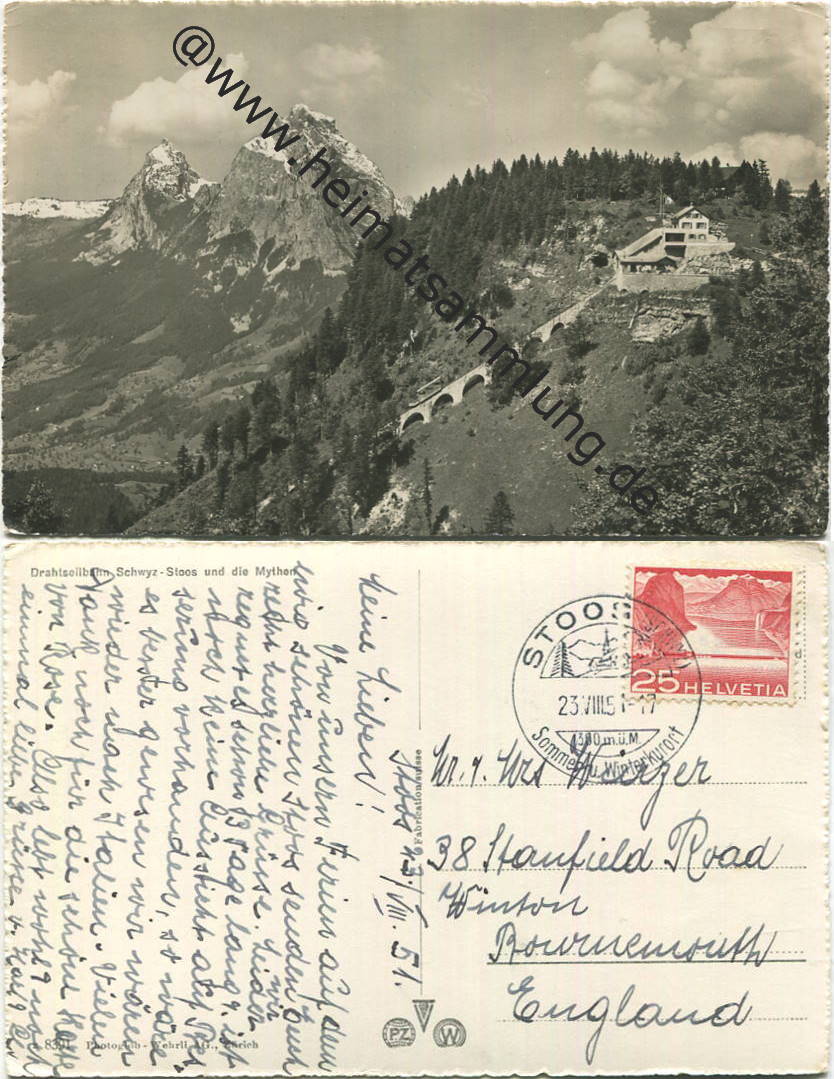 @www.heimatsammlung.de
Drahtseilbahn Schwyz-Stoos und die Mythen
Stoos 23/VIII. 51.
Meine Lieben!
Von unsern Ferien auf dem
schönen Stoos senden Euch
recht herzliche Grüsse. Leider
regnet es schon 3 Tage lang & ist
noch keine Aussicht auf Bes-
serung vorhanden, so wäre
es besser gewesen wir wären
wieder nach Italien. Vielen
Dank noch für die schöne Karte
von Rose. Also lebt wohl & noch
einmal liebe Grüsse v.
8391 Photoglob-Wehrli AG., Zürich
Fabrication suisse
PZ W
STOOS
23.VIII.51-17
1300 m.ü.M.
Sommer u. Winterkurort
25 HELVETIA
Mr. & Mrs
38 Stanfield Road
Winton
Bournemouth
England